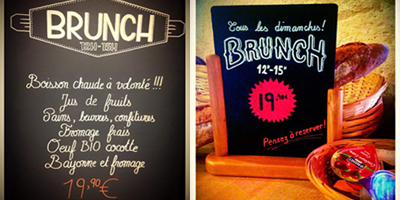 BRUNCH
12H-15H
Boisson chaude à volonté !!!
Jus de fruits
Pains, beurres, confitures
Fromage frais
Oeuf BIO cocotte
Bayonne et fromage
19,90€
Tous les dimanches!
BRUNCH
12H-15H
19,90€
Pensez à réserver!